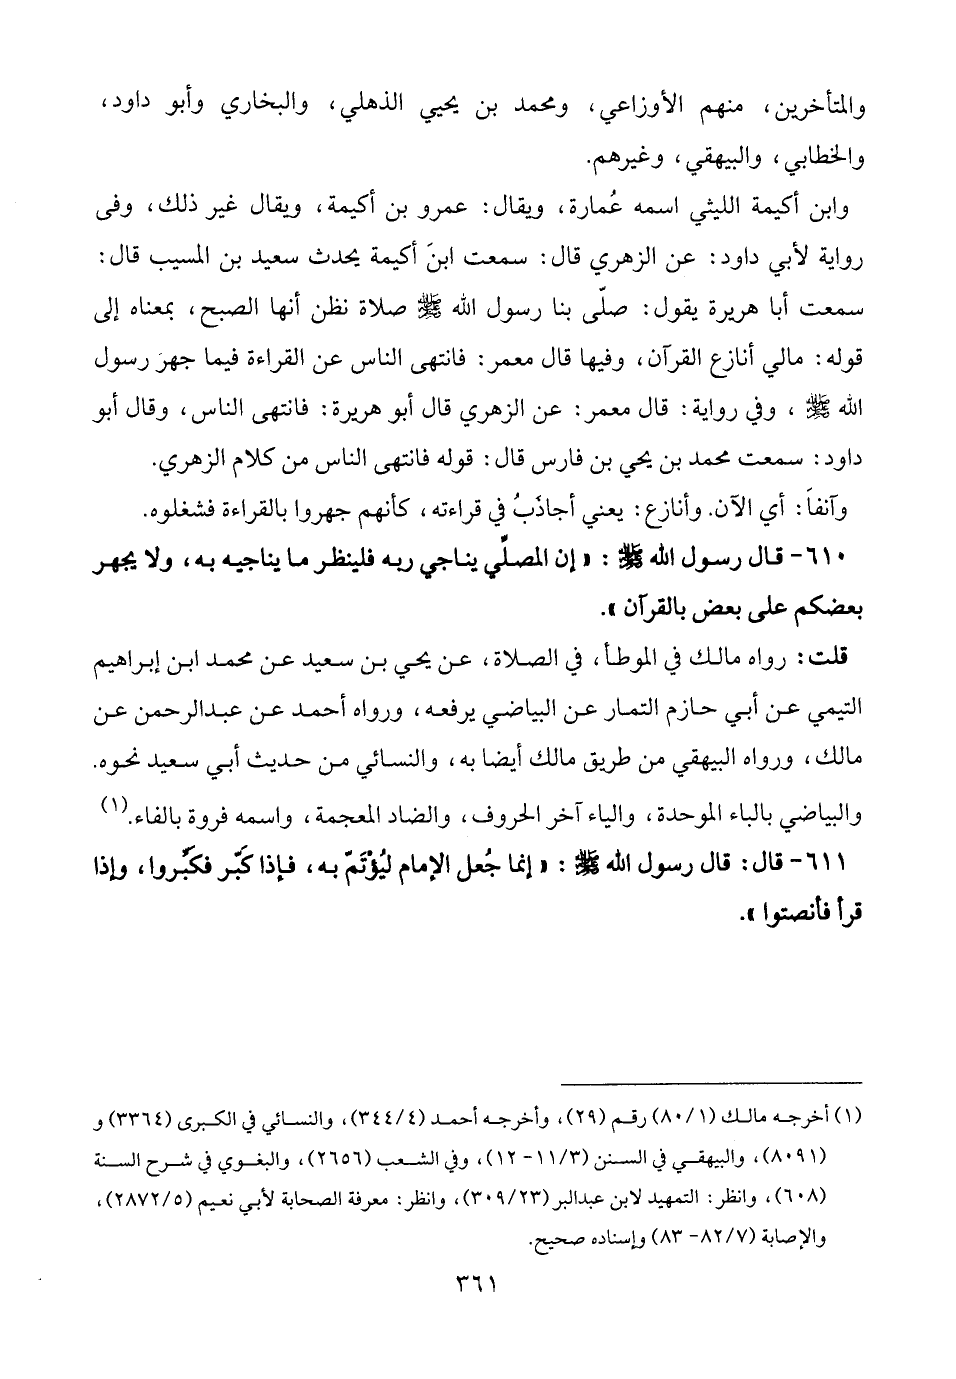 والمتأخرين، منهم الأوزاعي، ومحمد بن يحيي الذهلي، والبخاري وأبو داود،
والخطابي، والبيهقي، وغيرهم.
وابن أكيمة الليثي اسمه عُمارة، ويقال: عمرو بن أكيمة، ويقال غير ذلك، وفى
رواية لأبي داود: عن الزهري قال: سمعت ابنَ أكيمة يحدث سعيد بن المسيب قال:
سمعت أبا هريرة يقول: صلّى بنا رسول الله ﷺ صلاة نظن أنها الصبح، بمعناه إلى
قوله: مالي أنازع القرآن، وفيها قال معمر: فانتهى الناس عن القراءة فيما جهرَ رسول
الله ﷺ ، وفي رواية: قال معمر: عن الزهري قال أبو هريرة: فانتهى الناس، وقال أبو
داود: سمعت محمد بن يحي بن فارس قال: قوله فانتهى الناس من كلام الزهري.
وآنفاً: أي الآن. وأنازع: يعني أجاذَبُ في قراءته، كأنهم جهروا بالقراءة فشغلوه.
٦١٠- قال رسول الله ﷺ : « إن المصلّي يناجي ربه فلينظر ما يناجيه به، ولا يجهر
بعضكم على بعض بالقرآن ».
قلت: رواه مالك في الموطأ، في الصلاة، عن يحي بن سعيد عن محمد ابن إبراهيم
التيمي عن أبي حازم التمار عن البياضي يرفعه، ورواه أحمد عن عبدالرحمن عن
مالك، ورواه البيهقي من طريق مالك أيضا به، والنسائي من حديث أبي سعيد نحوه.
والبياضي بالباء الموحدة، والياء آخر الحروف، والضاد المعجمة، واسمه فروة بالفاء.(١)
٦١١- قال: قال رسول الله ﷺ : « إنما جُعل الإمام ليُؤْتمّ به، فإذا كبّر فكبّروا، وإذا
قرأ فأنصتوا ».
(١) أخرجه مالك (٨٠/١) رقم (٢٩)، وأخرجه أحمد (٣٤٤/٤)، والنسائي في الكبرى (٣٣٦٤) و
(٨٠٩١)، والبيهقي في السنن (١١/٣- ١٢)، وفي الشعب (٢٦٥٦)، والبغوي في شرح السنة
(٦٠٨)، وانظر: التمهيد لابن عبدالبر (٣٠٩/٢٣)، وانظر: معرفة الصحابة لأبي نعيم (٢٨٧٢/٥)،
والإصابة (٨٢/٧- ٨٣) وإسناده صحيح.
٣٦١